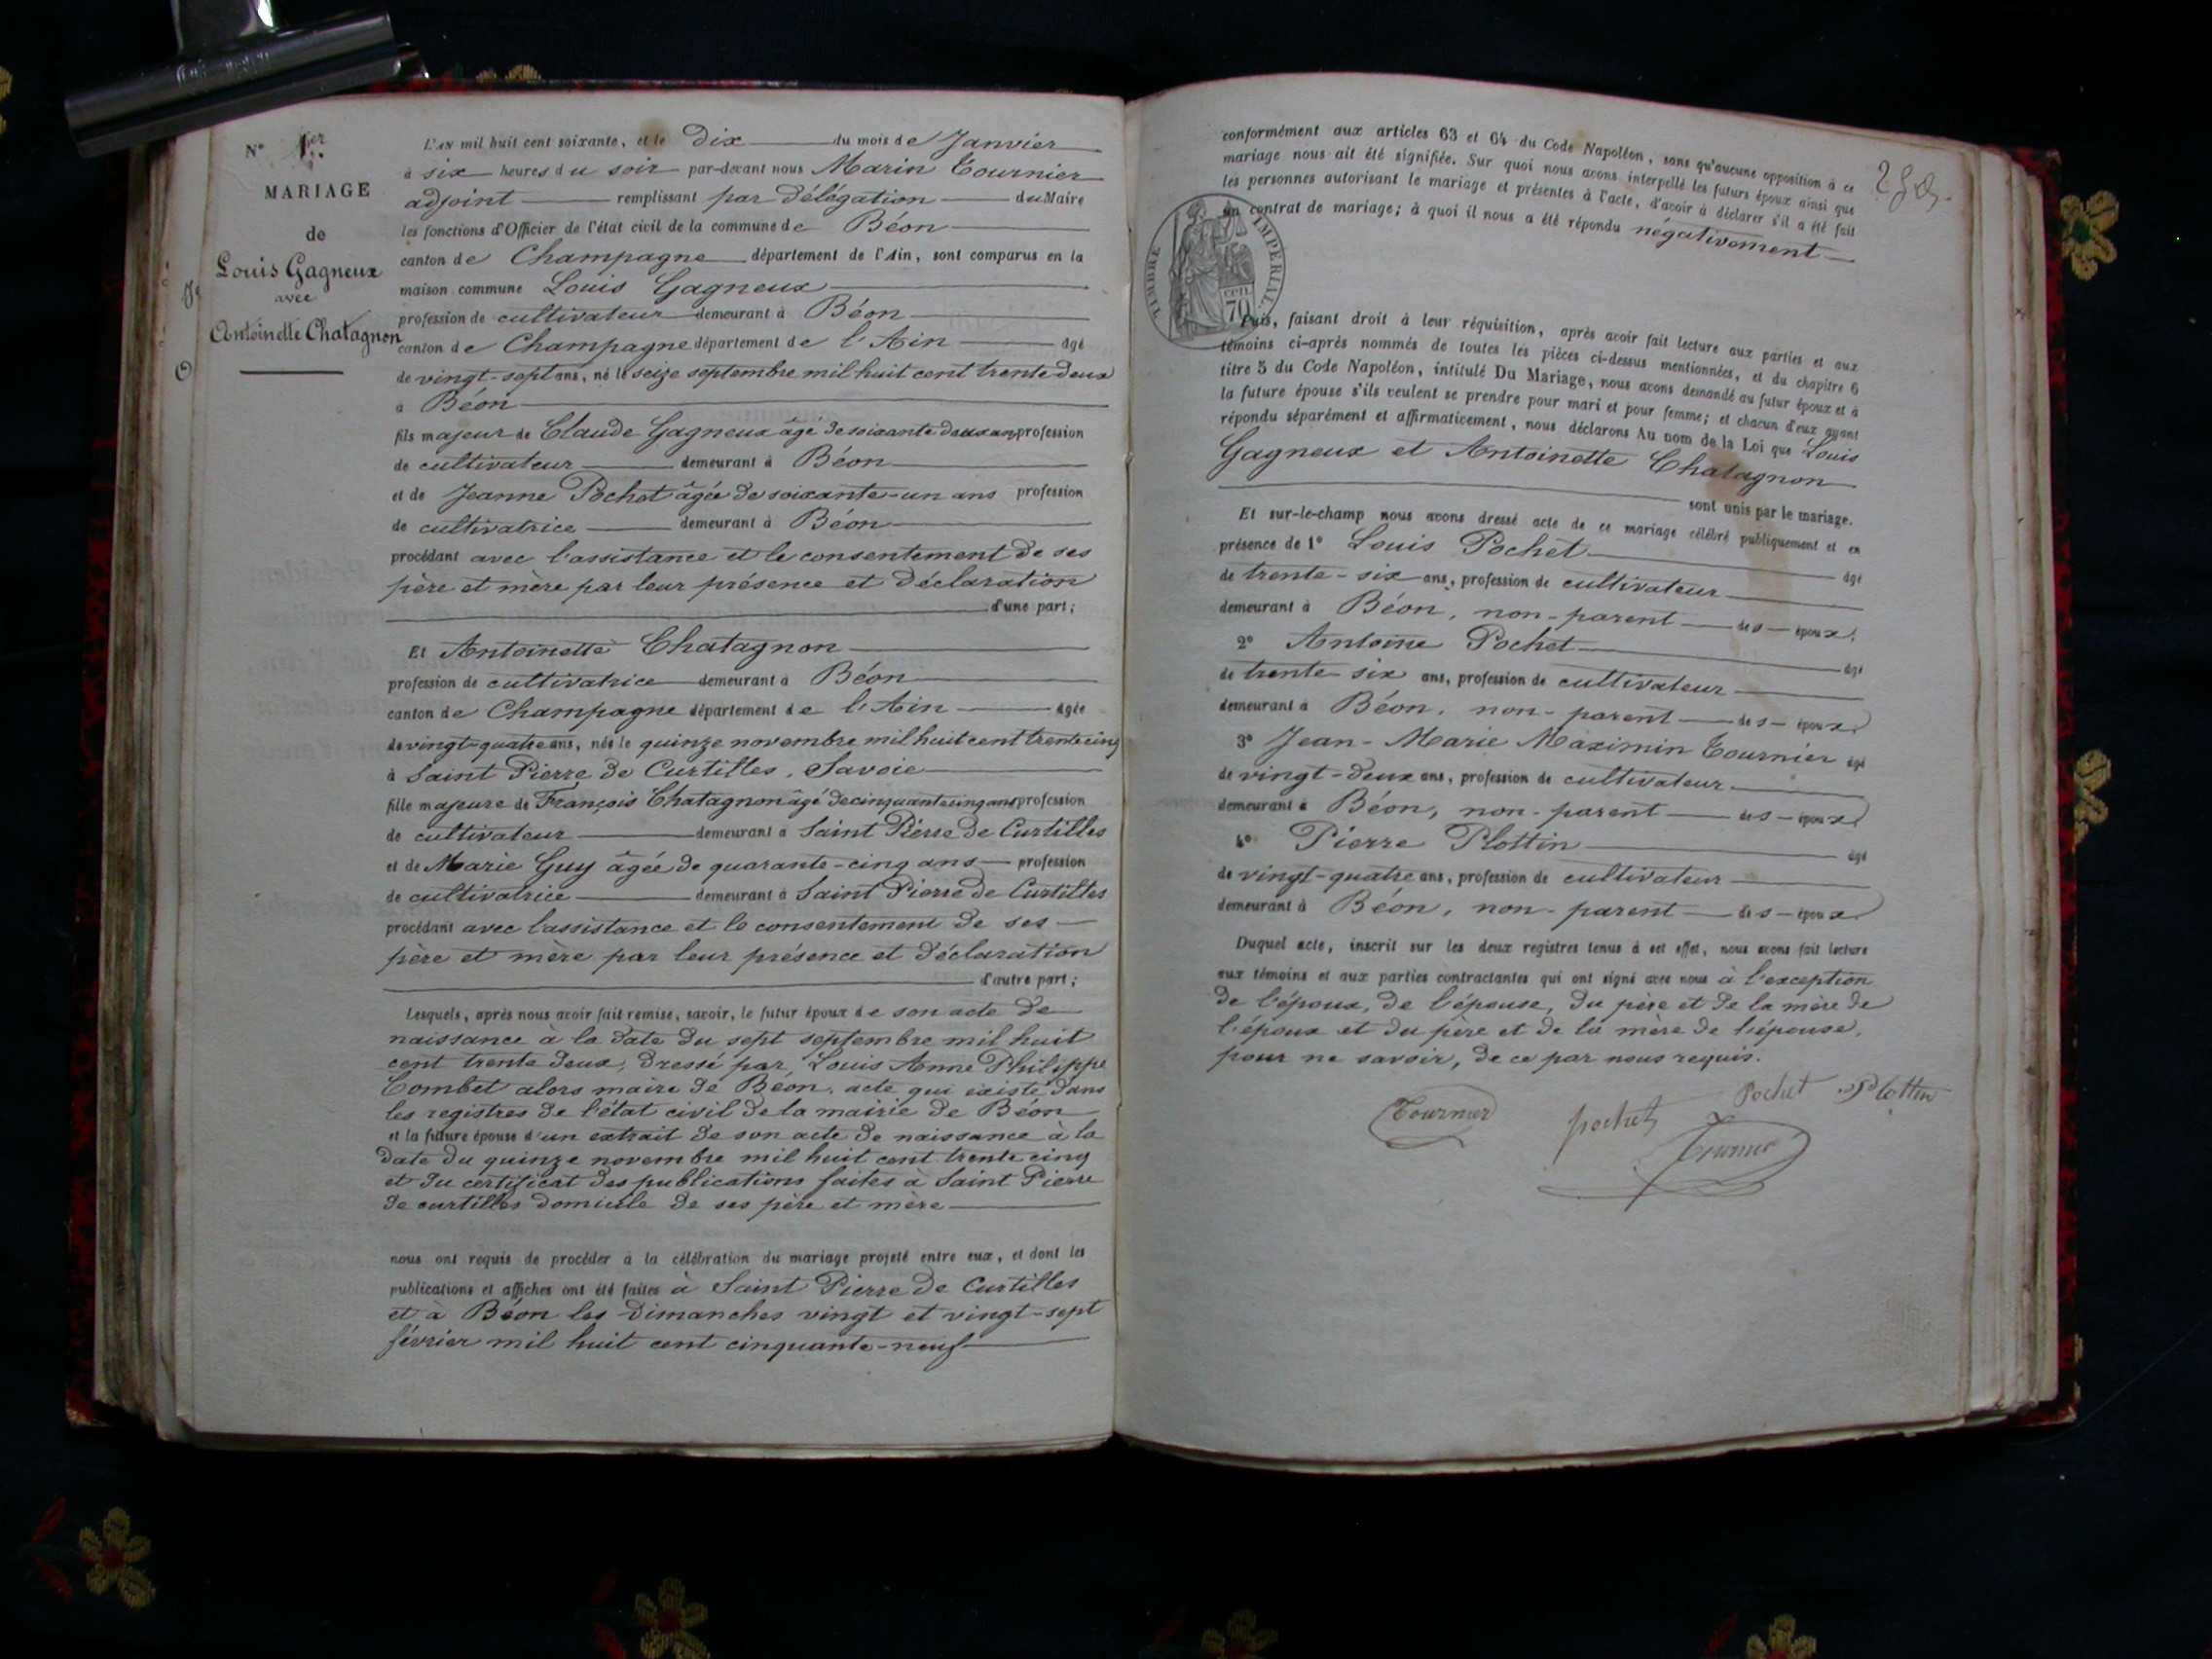 N° 1er
MARIAGE
de
Louis Gagneux
avec
Antoinette Chatagnon
L'AN mil huit cent soixante, et le Dix du mois de Janvier
à six heures du soir par-devant nous Marin Tournier
adjoint remplissant par Délégation du Maire
les fonctions d'Officier de l'état civil de la commune de Béon
canton de Champagne département de l'Ain, sont comparus en la
maison commune Louis Gagneux
profession de cultivateur demeurant à Béon
canton de Champagne département de l'Ain âgé
de vingt-sept ans, né le seize septembre mil huit cent trente deux
à Béon
fils majeur de Claude Gagneux âgé de soixante deux ans profession
de cultivateur demeurant à Béon
et de Jeanne Pochet âgée de soixante-un ans profession
de cultivatrice demeurant à Béon
procédant avec l'assistance et le consentement de ses
père et mère par leur présence et déclaration
d'une part;
Et Antoinette Chatagnon
profession de cultivatrice demeurant à Béon
canton de Champagne département de l'Ain âgée
de vingt-quatre ans, née le quinze novembre mil huit cent trente cinq
à Saint Pierre de Curtilles, Savoie
fille majeure de François Chatagnon âgé de cinquante cinq ans profession
de cultivateur demeurant à Saint Pierre de Curtilles
et de Marie Guy âgée de quarante-cinq ans profession
de cultivatrice demeurant à Saint Pierre de Curtilles
procédant avec l'assistance et le consentement de ses
père et mère par leur présence et déclaration
d'autre part;
Lesquels, après nous avoir fait remise, savoir, le futur époux de son acte de
naissance à la date du sept septembre mil huit
cent trente deux, dressé par, Louis Anne Philippe
Combet alors maire de Béon, acte qui existe dans
les registres de l'état civil de la mairie de Béon
et la future épouse d'un extrait de son acte de naissance à la
date du quinze novembre mil huit cent trente cinq
et du certificat des publications faites à Saint Pierre
de curtilles domicile de ses père et mère
nous ont requis de procéder à la célébration du mariage projeté entre eux, et dont les
publications et affiches ont été faites à Saint Pierre de Curtilles
et à Béon les Dimanches vingt et vingt-sept
février mil huit cent cinquante-neuf
conformément aux articles 63 et 64 du Code Napoléon, sans qu'aucune opposition à ce
mariage nous ait été signifiée. Sur quoi nous avons interpellé les futurs époux ainsi que
les personnes autorisant le mariage et présentes à l'acte, d'avoir à déclarer s'il a été fait
un contrat de mariage; à quoi il nous a été répondu négativement
TIMBRE IMPÉRIAL
cen.
70
Puis, faisant droit à leur réquisition, après avoir fait lecture aux parties et aux
témoins ci-après nommés de toutes les pièces ci-dessus mentionnées, et du chapitre 6
titre 5 du Code Napoléon, intitulé Du Mariage, nous avons demandé au futur époux et à
la future épouse s'ils veulent se prendre pour mari et pour femme; et chacun d'eux ayant
répondu séparément et affirmativement, nous déclarons Au nom de la Loi que Louis
Gagneux et Antoinette Chatagnon
sont unis par le mariage.
Et sur-le-champ nous avons dressé acte de ce mariage célébré publiquement et en
présence de 1° Louis Pochet âgé
de trente-six ans, profession de cultivateur
demeurant à Béon, non-parent des époux;
2° Antoine Pochet âgé
de trente six ans, profession de cultivateur
demeurant à Béon, non-parent des époux
3° Jean-Marie Maximin Tournier âgé
de vingt-deux ans, profession de cultivateur
demeurant à Béon, non-parent des époux
4° Pierre Plottin âgé
de vingt-quatre ans, profession de cultivateur
demeurant à Béon, non-parent des époux
Duquel acte, inscrit sur les deux registres tenus à cet effet, nous avons fait lecture
aux témoins et aux parties contractantes qui ont signé avec nous à l'exception
de l'époux, de l'épouse, du père et de la mère de
l'époux et du père et de la mère de l'épouse,
pour ne savoir, de ce par nous requis.
Pochet Plottin
Tournier pochet
Tournier